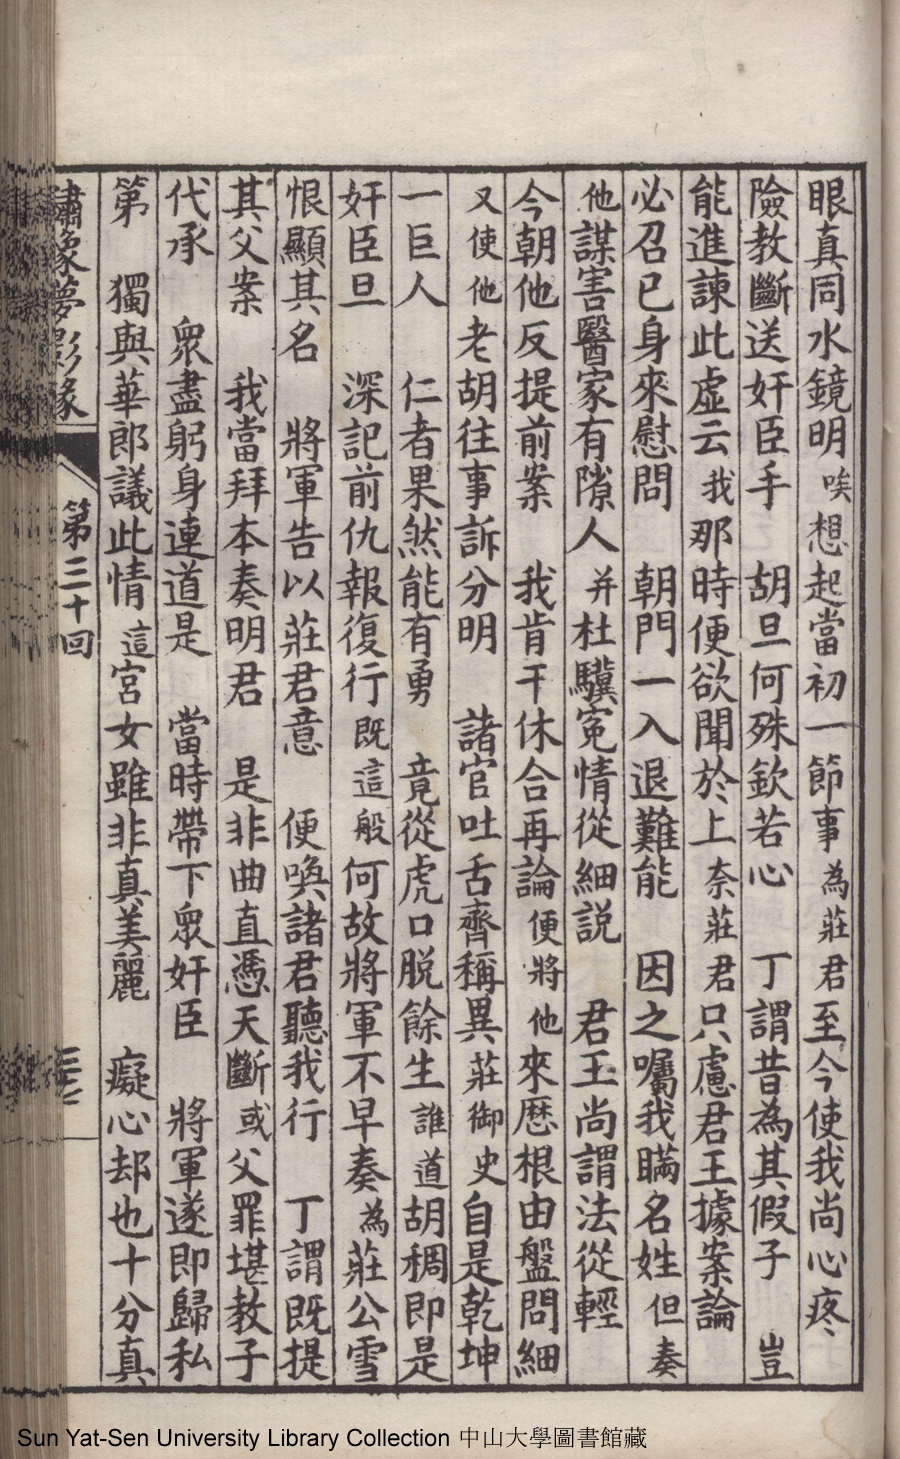 眼真同水鏡明 唉想起當初一節事 為莊君至今使我尚心疼
險教斷送奸臣手 胡旦何殊欽若心 丁謂昔為其假子 豈
能進諫此虛云 我那時便欲聞於上 奈莊君只慮君王據案論
必召已身來慰問 朝門一入退難能 因之囑我瞞名姓 但奏
他謀害醫家有隙人 并杜驥冤情從細說 君王尚謂法從輕
今朝他反提前案 我肯干休合再論 便將他來歷根由盤問細
又使他老胡往事訴分明 諸官吐舌齊稱異 莊御史自是乾坤
一巨人 仁者果然能有勇 竟從虎口脫餘生 誰道胡稠即是
奸臣旦 深記前仇報復行 既這般何故將軍不早奏 為莊公雪
恨顯其名 將軍告以莊君意 便喚諸君聽我行 丁謂既提
其父案 我當拜本奏明君 是非曲直憑天斷 或父罪堪教子
代承 眾盡躬身連道是 當時帶下眾奸臣 將軍遂即歸私
第 獨與華郎議此情 這宮女雖非真美麗 癡心却也十分真
繡像夢影緣 第三十回
Sun Yat-Sen University Library Collection 中山大學圖書館藏